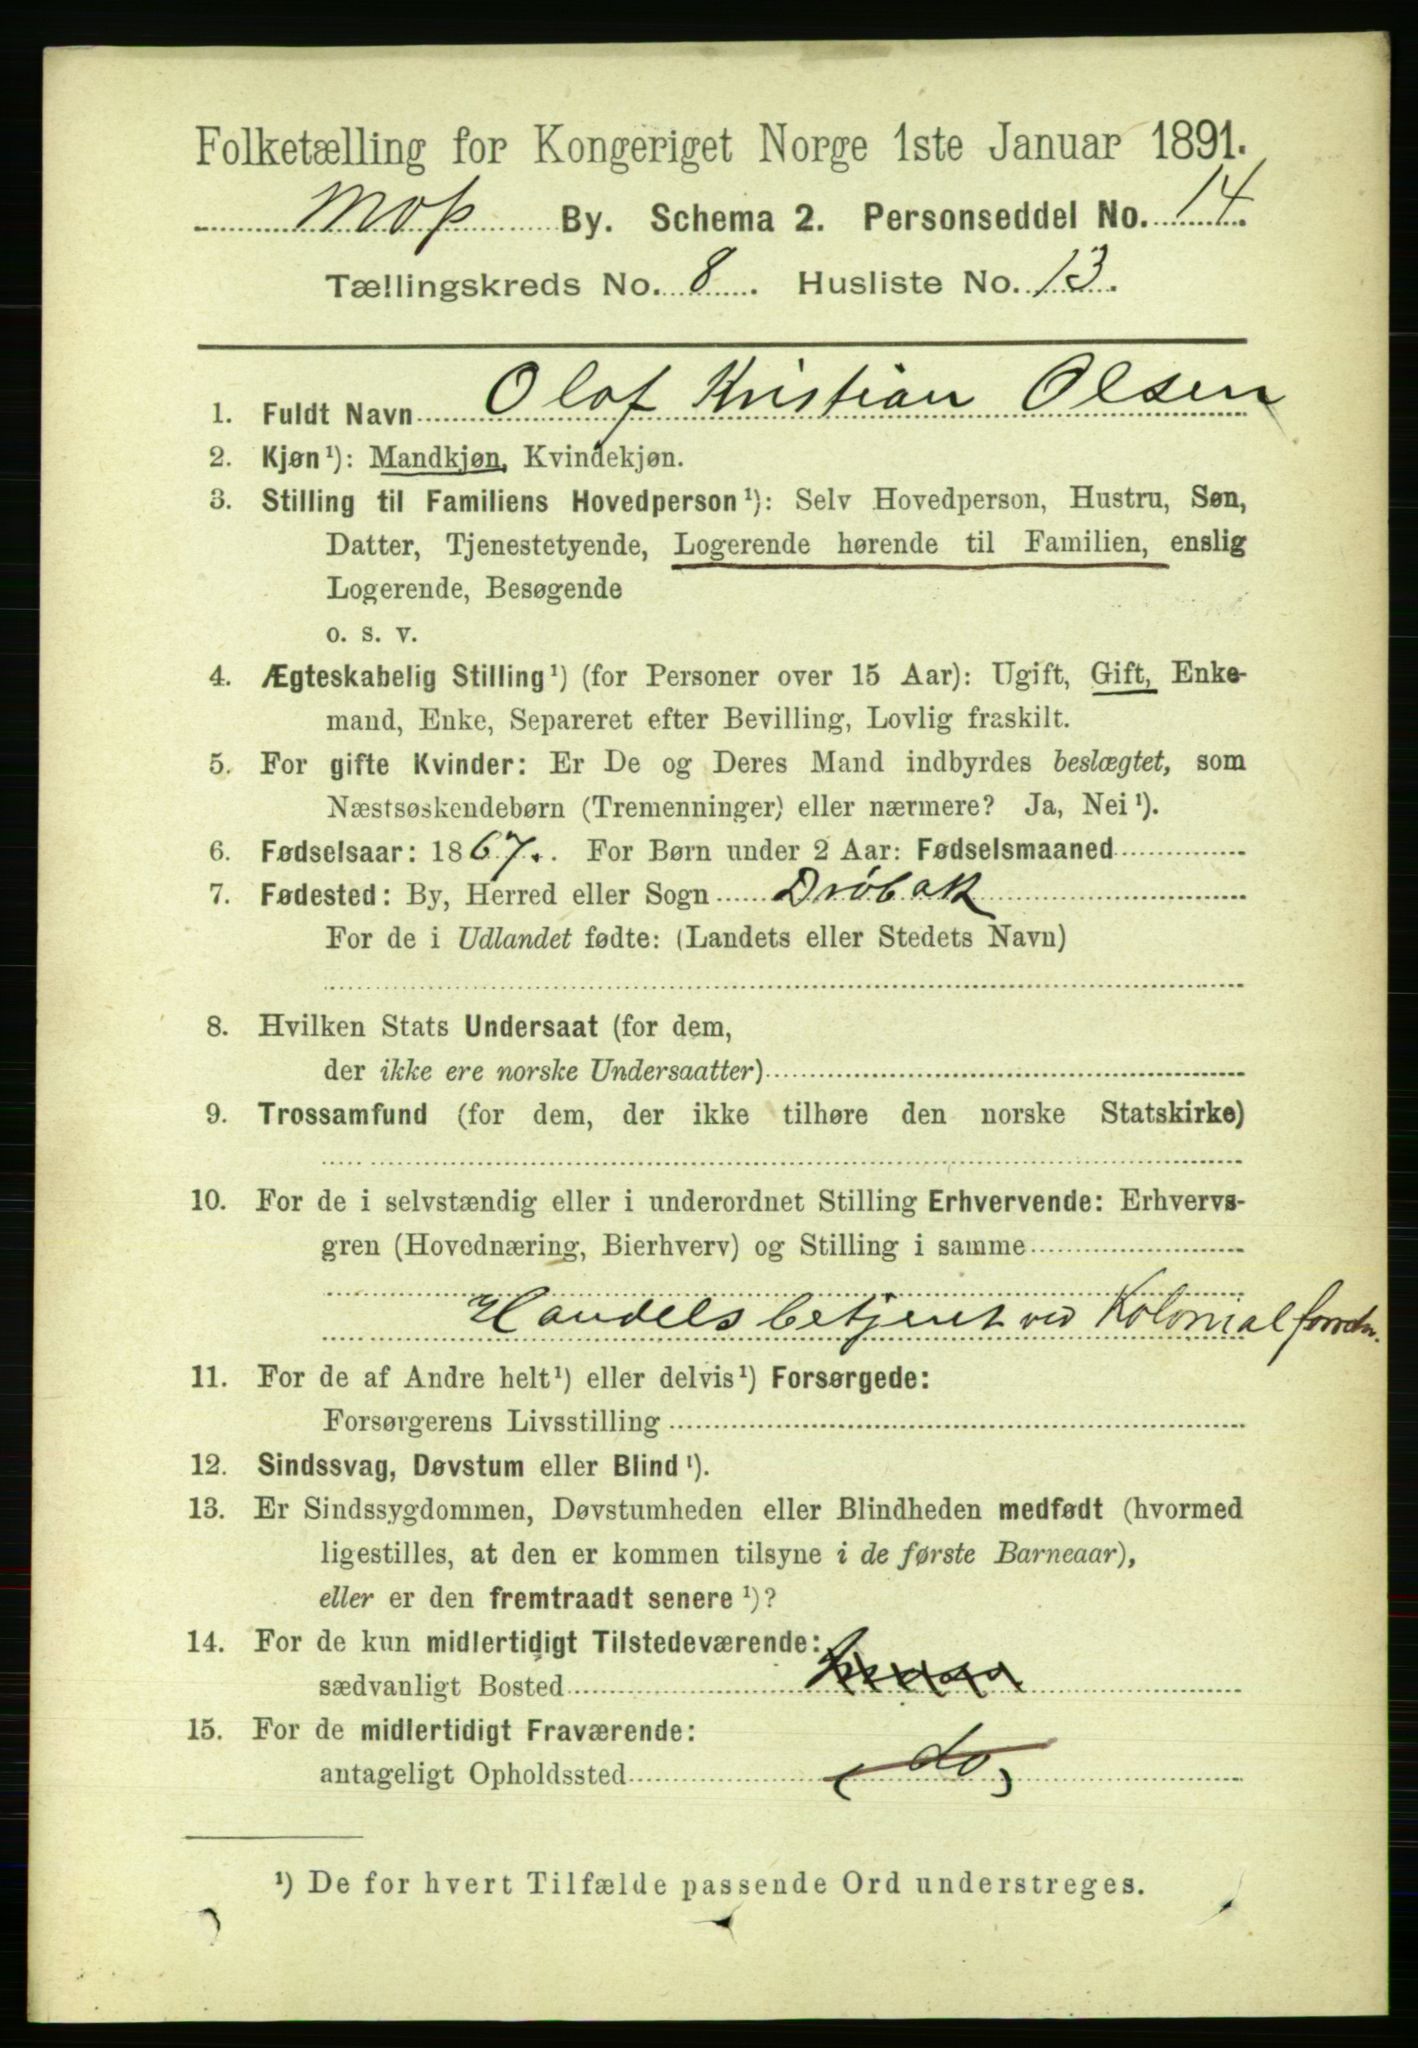 Folketælling for Kongeriget Norge 1ste Januar 1891.
Moss By. Schema 2. Personseddel No. 14.
Tællingskreds No. 8. Husliste No. 13.
1. Fuldt Navn Olaf Kristian Olsen
2. Kjøn¹): Mandkjøn, Kvindekjøn.
3. Stilling til Familiens Hovedperson¹): Selv Hovedperson, Hustru, Søn,
Datter, Tjenestetyende, Logerende hørende til Familien, enslig
Logerende, Besøgende
o. s. v.
4. Ægteskabelig Stilling¹) (for Personer over 15 Aar): Ugift, Gift, Enke-
mand, Enke, Separeret efter Bevilling, Lovlig fraskilt.
5. For gifte Kvinder: Er De og Deres Mand indbyrdes beslægtet, som
Næstsøskendebørn (Tremenninger) eller nærmere? Ja, Nei¹).
6. Fødselsaar: 1867. For Børn under 2 Aar: Fødselsmaaned
7. Fødested: By, Herred eller Sogn Drøbak
For de i Udlandet fødte: (Landets eller Stedets Navn)
8. Hvilken Stats Undersaat (for dem,
der ikke ere norske Undersaatter)
9. Trossamfund (for dem, der ikke tilhøre den norske Statskirke)
10. For de i selvstændig eller i underordnet Stilling Erhvervende: Erhvervs-
gren (Hovednæring, Bierhverv) og Stilling i samme
Handelsbetjent ved Kolonial
11. For de af Andre helt¹) eller delvis¹) Forsørgede:
Forsørgerens Livsstilling
12. Sindssvag, Døvstum eller Blind¹).
13. Er Sindssygdommen, Døvstumheden eller Blindheden medfødt (hvormed
ligestilles, at den er kommen tilsyne i de første Barneaar),
eller er den fremtraadt senere¹)?
14. For de kun midlertidigt Tilstedeværende:
sædvanligt Bosted
15. For de midlertidigt Fraværende:
antageligt Opholdssted do
¹) De for hvert Tilfælde passende Ord understreges.